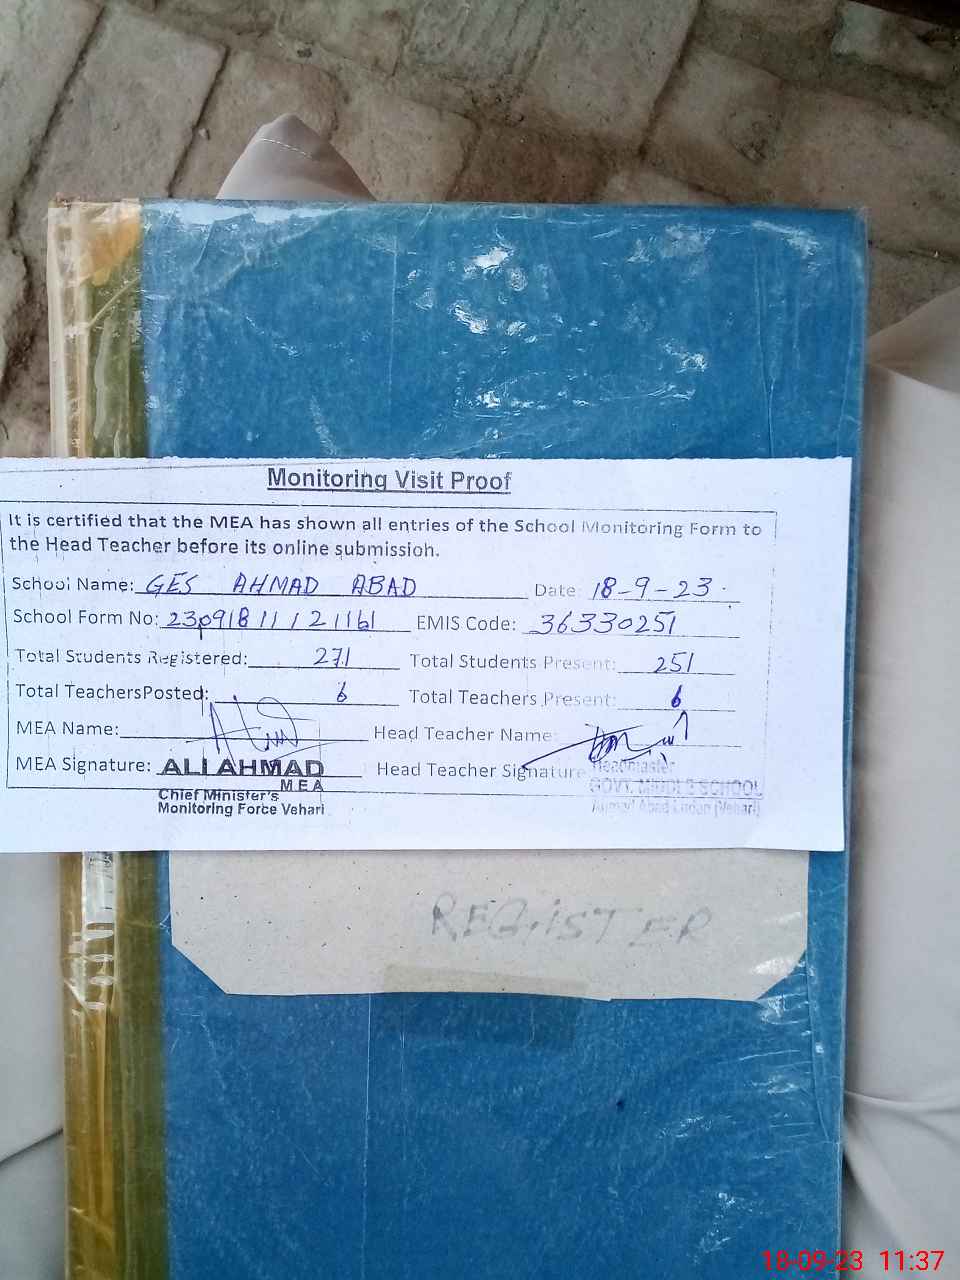 Monitoring Visit Proof
It is certified that the MEA has shown all entries of the School Monitoring Form to
the Head Teacher before its online submission.
School Name: GES AHMAD ABAD Date: 18-9-23
School Form No: EMIS Code: 36330251
Total Students Registered: 271 Total Students Present: 251
Total TeachersPosted: 6 Total Teachers Present: 6
MEA Name: Head Teacher Name:
MEA Signature: ALI AHMAD Head Teacher Signature Headmaster
MEA GOVT. MIDDLE SCHOOL
Chief Minister's Ahmad Abad Ludan (Vehari)
Monitoring Force Vehari
REGISTER
18-09-23 11:37